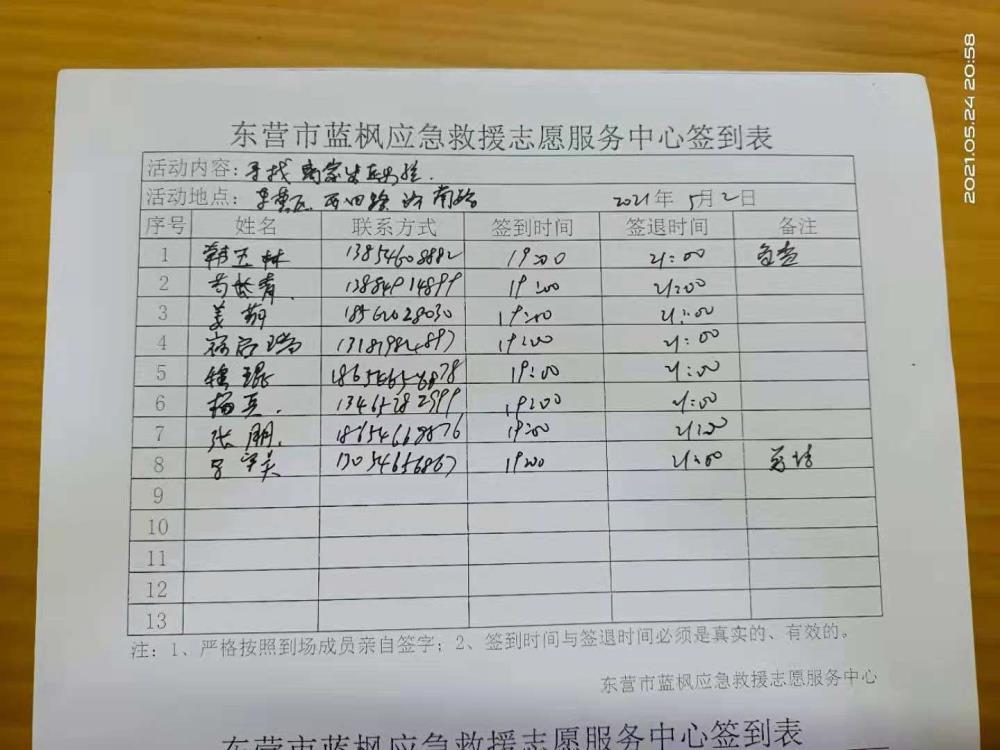 东营市蓝枫应急救援志愿服务中心签到表
活动内容:寻找离家出走男孩.
活动地点: 西四路 南路 2021年 5月2日
序号 姓名 联系方式 签到时间 签退时间 备注
1 韩玉林 13854608882 19:00 21:00
2 苟长青. 13884914899 19:00 21:00
3 姜萌 18562028030 19:00 21:00
4 131819824897 19:00 21:00
5 19:00 21:00
6 杨真. 13465282999 19:00 21:00
7 张朋. 18654669876 19:00 21:00
8 13054656867 19:00 21:00
9
10
11
12
13
注: 1、严格按照到场成员亲自签字; 2、签到时间与签退时间必须是真实的、有效的。
东营市蓝枫应急救援志愿服务中心
东营市蓝枫应急救援志愿服务中心签到表
2021.05.24 20:58